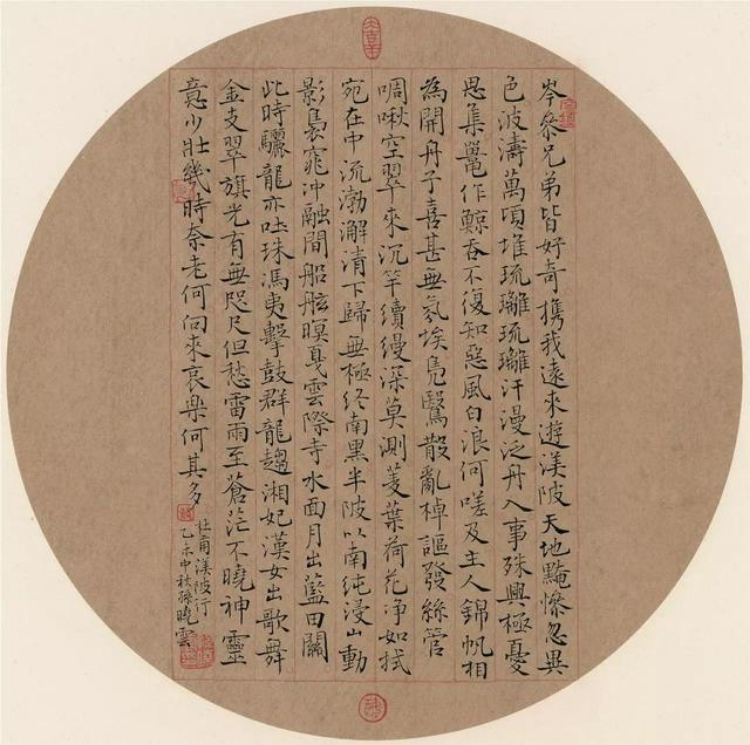 岑叅兄弟皆好奇攜我遠來遊渼陂天地黤慘忽異
色波濤萬頃堆琉璃琉璃汗漫泛舟入事殊興極憂
思集鼉作鯨吞不復知惡風白浪何嗟及主人錦帆相
為開舟子喜甚無氛埃鳧鷖散亂棹謳發絲管
啁啾空翠來沉竿續縵深莫測菱葉荷花净如拭
宛在中流渤澥清下歸無極終南黑半陂以南純浸山動
影裊窕冲融間船舷暝戛雲際寺水面月出藍田關
此時驪龍亦吐珠馮夷擊鼓群龍趨湘妃漢女出歌舞
金支翠旗光有無咫尺但愁雷雨至蒼茫不曉神靈
意少壯幾時奈老何向來哀樂何其多
杜甫渼陂行
乙未中秋孫曉雲
大吉羊